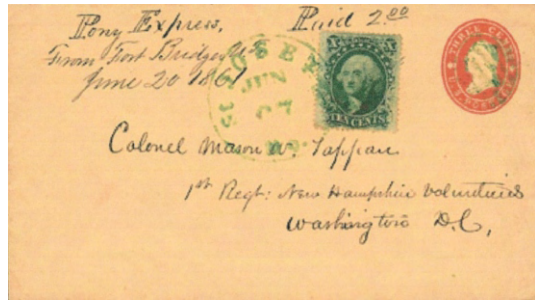 Pony Express,
Paid 2.00
From Fort Bridger U.T.
June 20 1861
ST JOSEPH
JUN
TEN CENTS
THREE CENTS
Colonel Mason W. Tappan
1st Regt: New Hampshire Volunteers
Washington D.C,